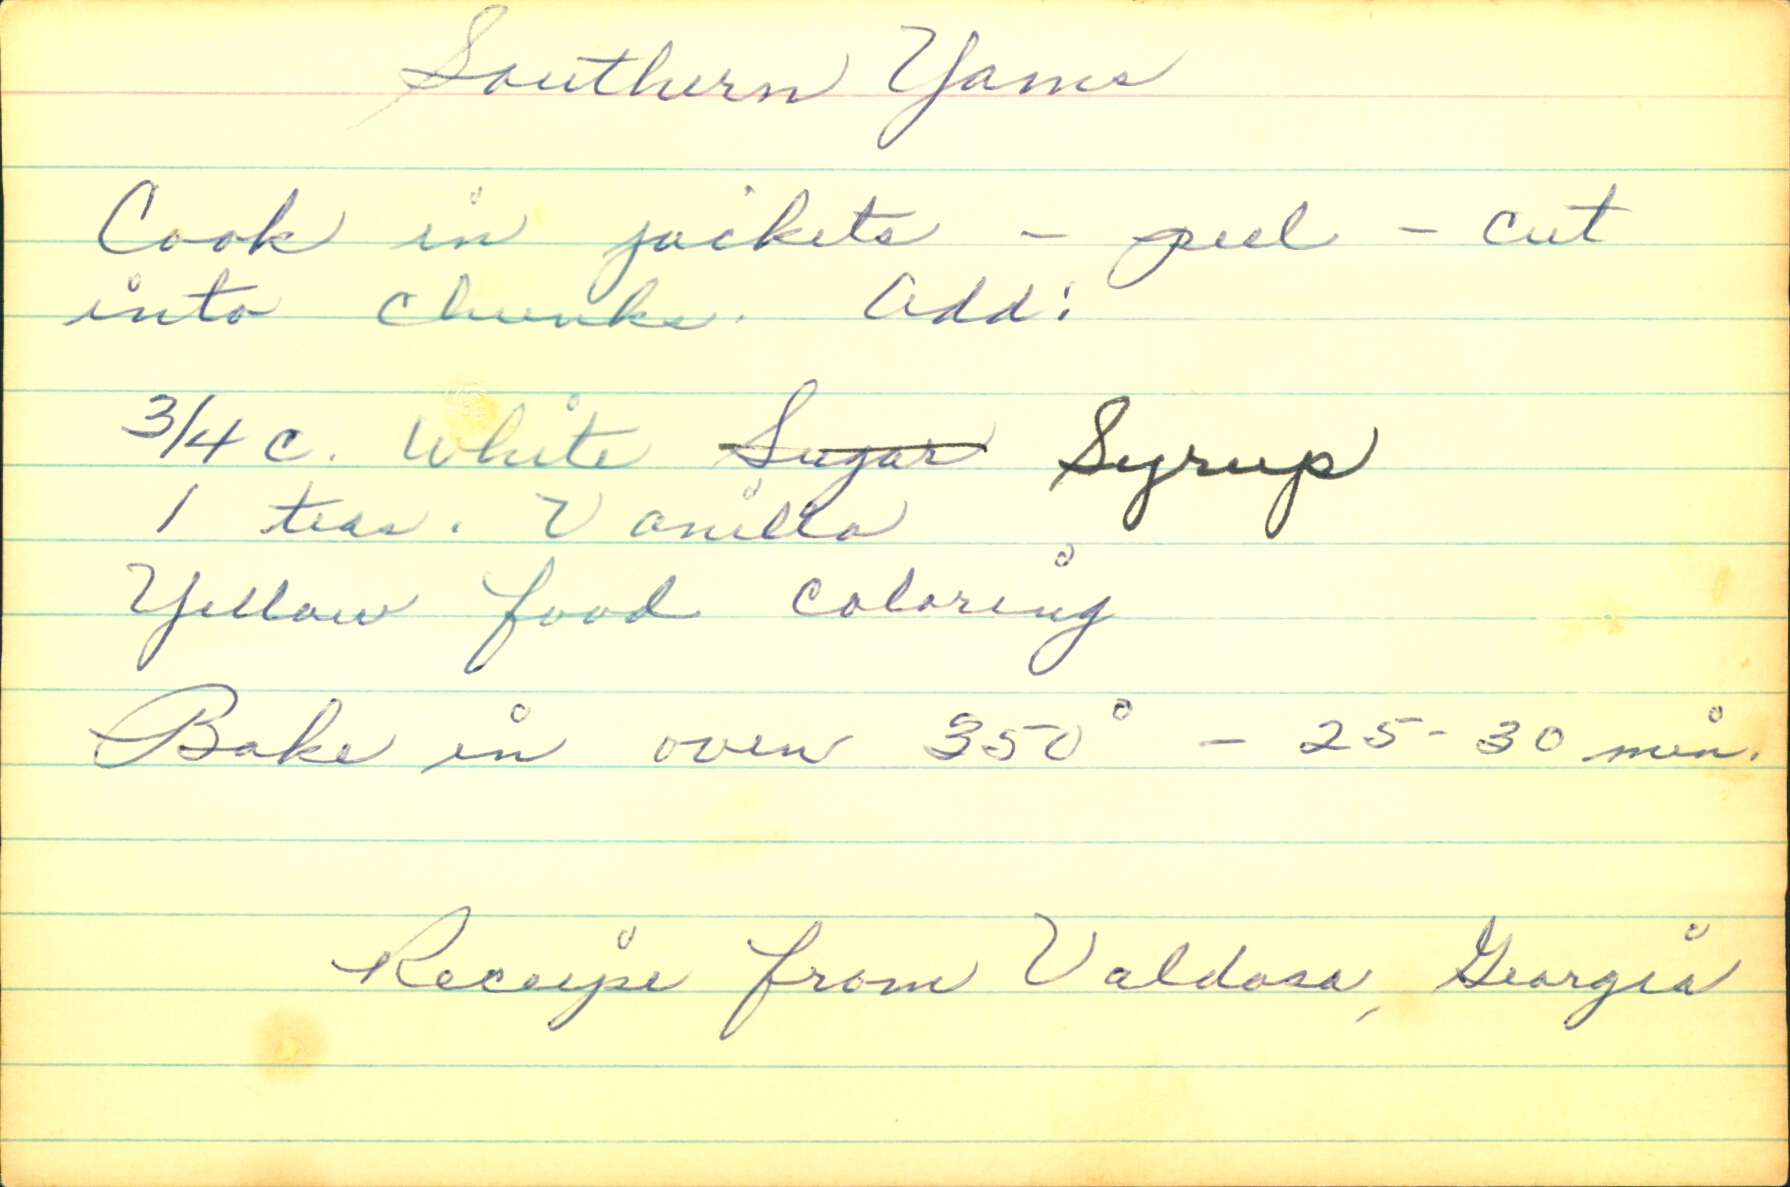 Southern Yams
Cook in jackets - peel - cut
into chunks. Add:
3/4 c. White Sugar Syrup
1 teas. Vanilla
Yellow food coloring
Bake in oven 350° - 25-30 min.
Receipe from Valdosa, Georgia